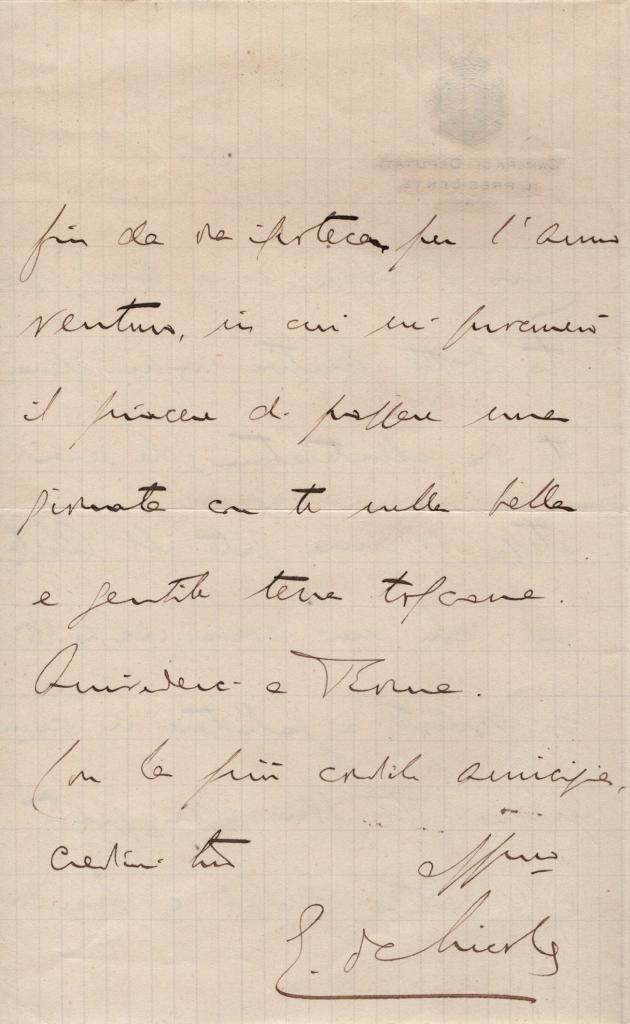 CAMERA DEI DEPUTATI
IL PRESIDENTE
fin da ora ipoteca, per l'anno
venturo, in cui mi procurerò
il piacere di passare una
giornata con te nella bella
e gentile terra toscana.
Arrivederci a Roma.
Con la più cordiale amicizia,
credimi tuo affmo
E. de Nicola